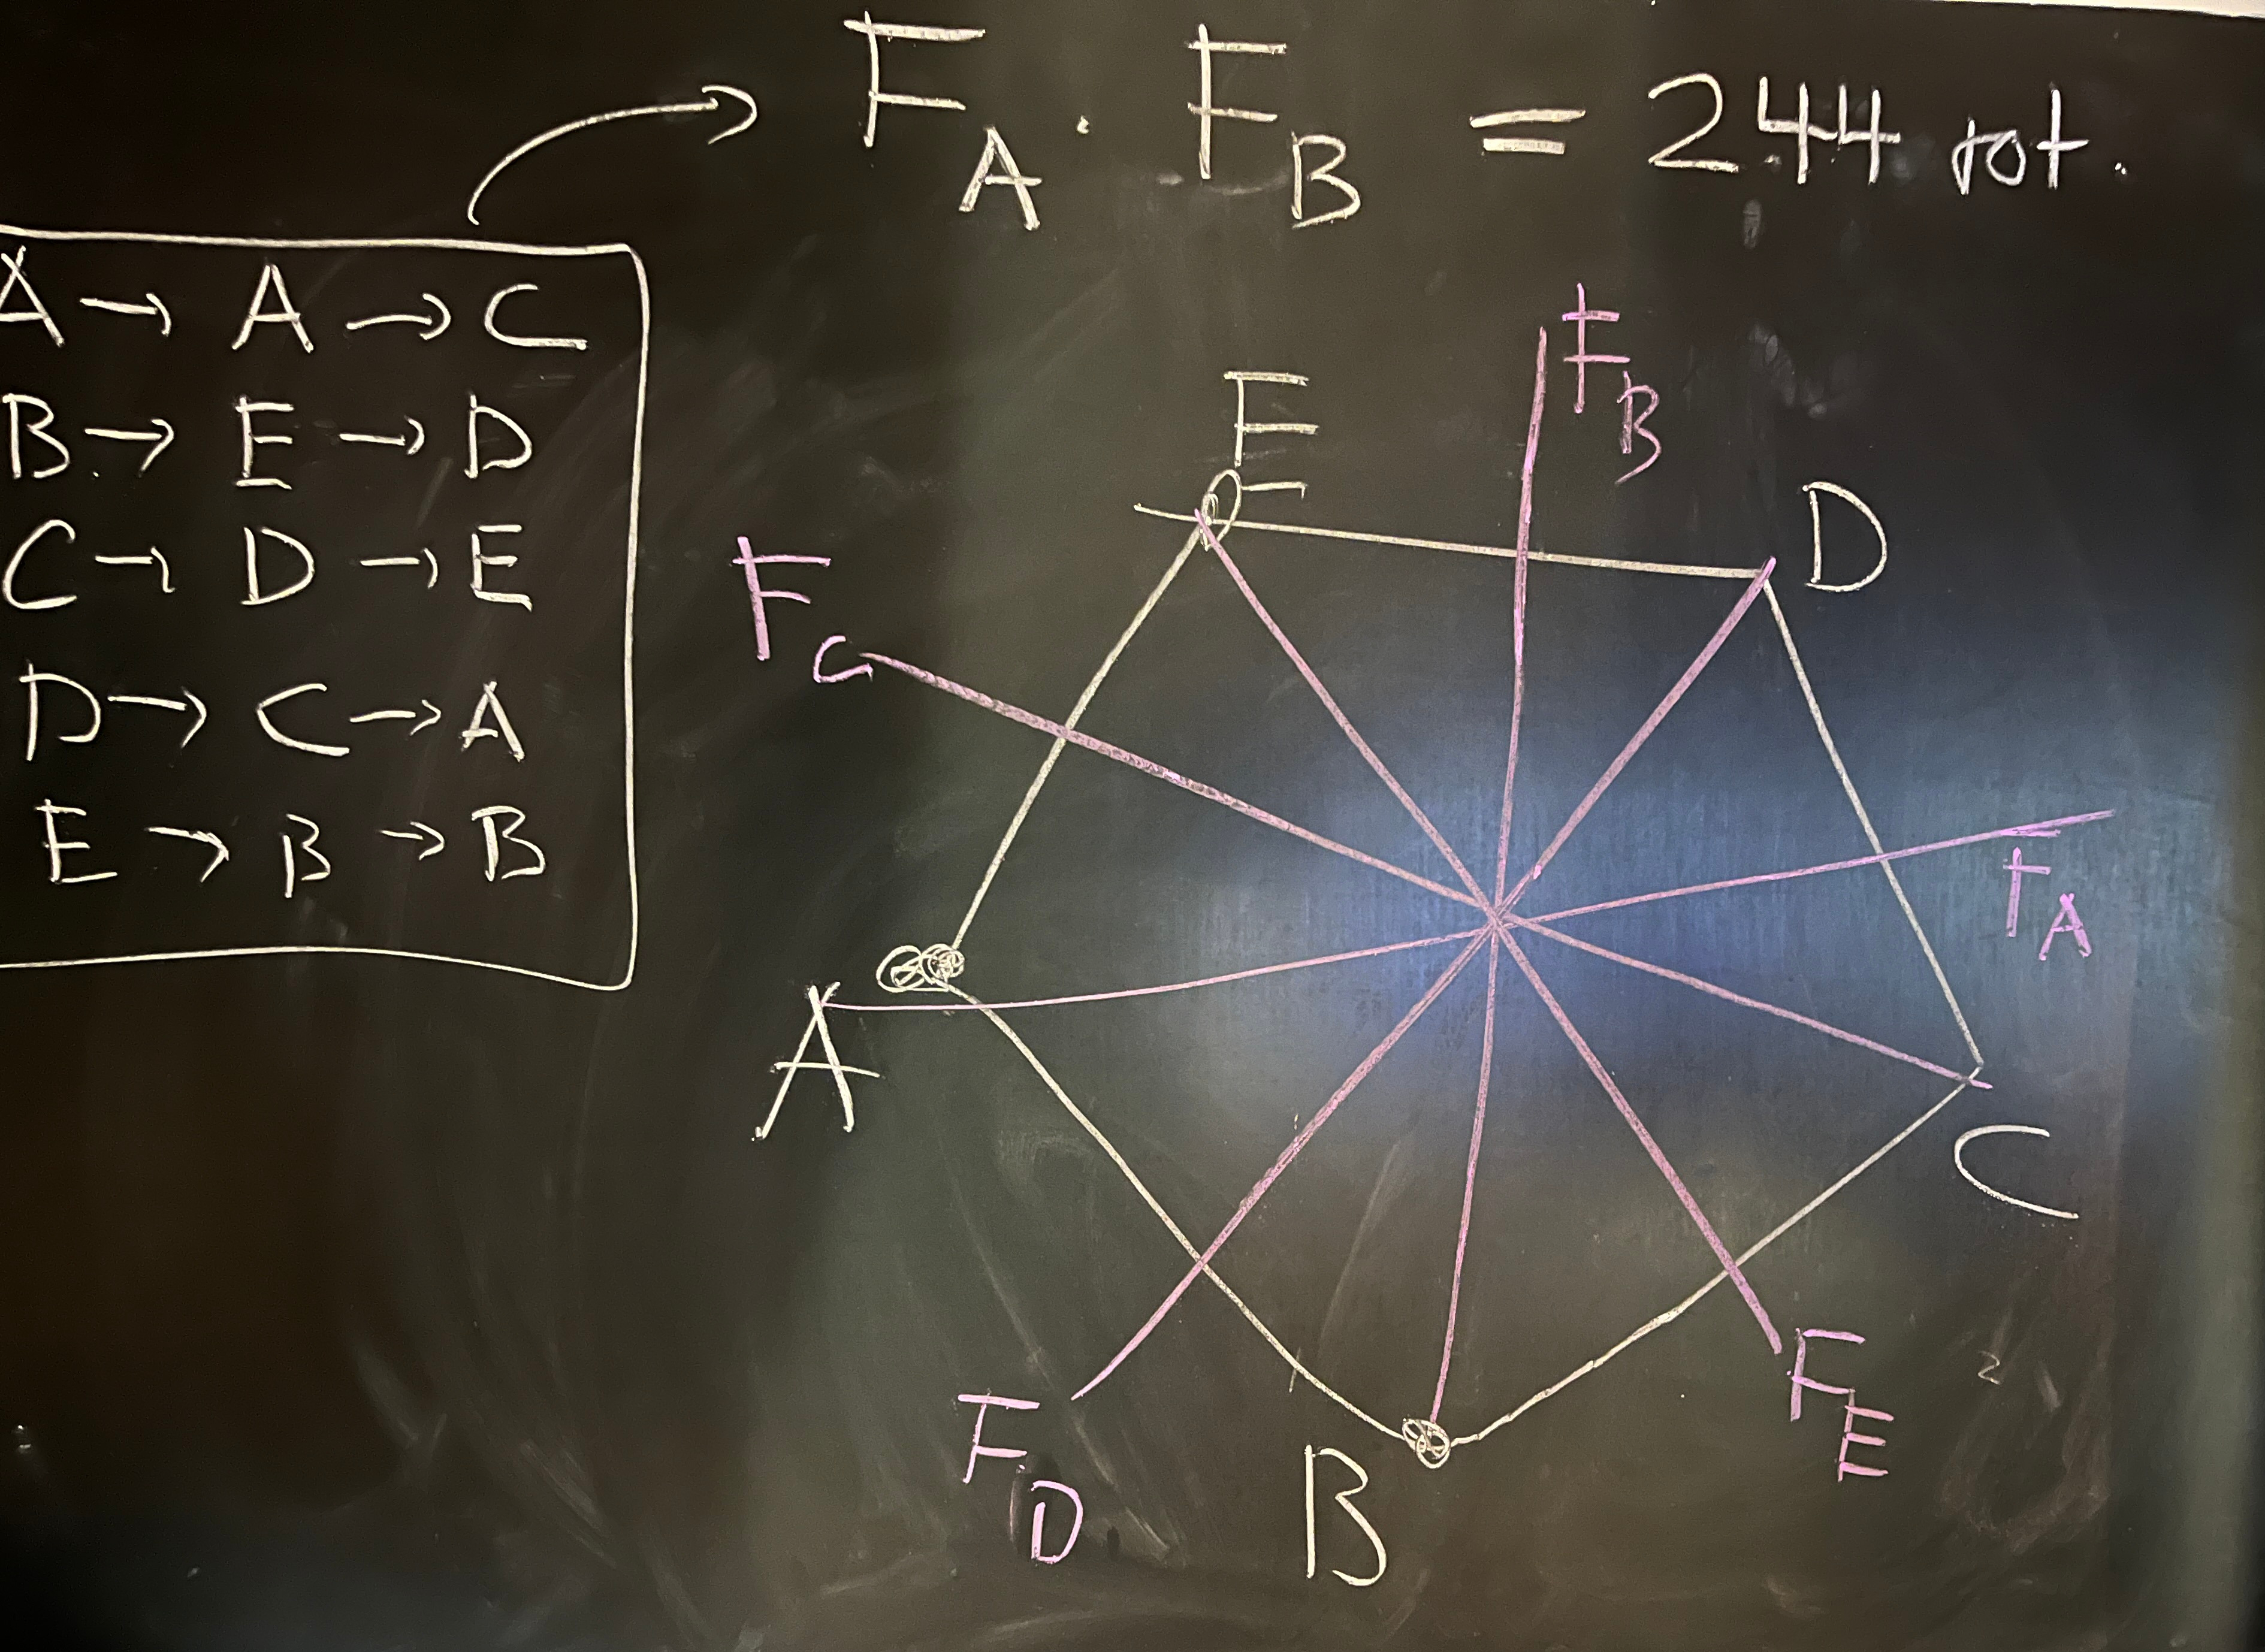 F_A · F_B = 244 rot.
A → A → C
B → E → D
C → D → E
D → C → A
E → B → B
F_B
E
D
F_C
F_A
A
C
F_E
F_D
B